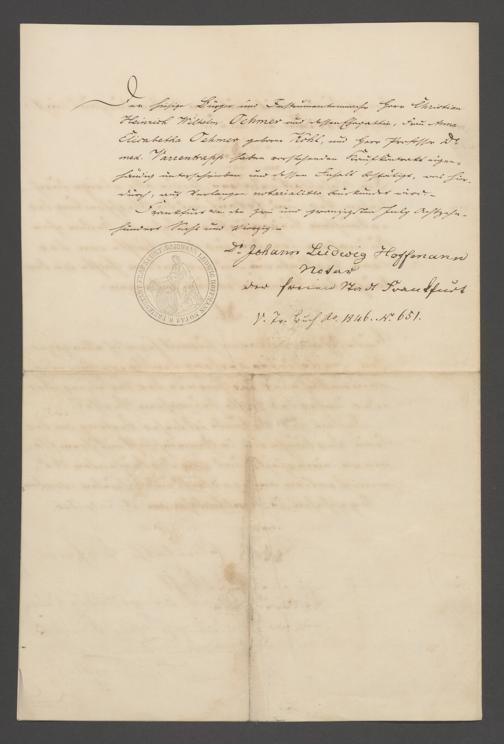 Der hiesige Bürger und Instrumentenmacher Herr Christian
Heinrich Wilhelm Oehmer und dessen Ehegattin, Frau Anna
Elisabetha Oehmer geborne Röhl, und Herr Professor Dr
med. Varrentrapp haben vorstehenden Kaufkontrakt eigen-
händig unterschrieben und dessen Inhalt bestätigt, was hier-
durch, auf Verlangen notarialiter beurkundet wird.
Frankfurt den und zwanzigsten July Achtzehn-
hundert Sechs und Vierzig.-
Dr Johann Ludwig Hoffmann
Notar
der freien Stadt Frankfurt
V. Tr. Buch do. 1846. No 651.
JOHANN LUDWIG HOFFMANN NOTAR